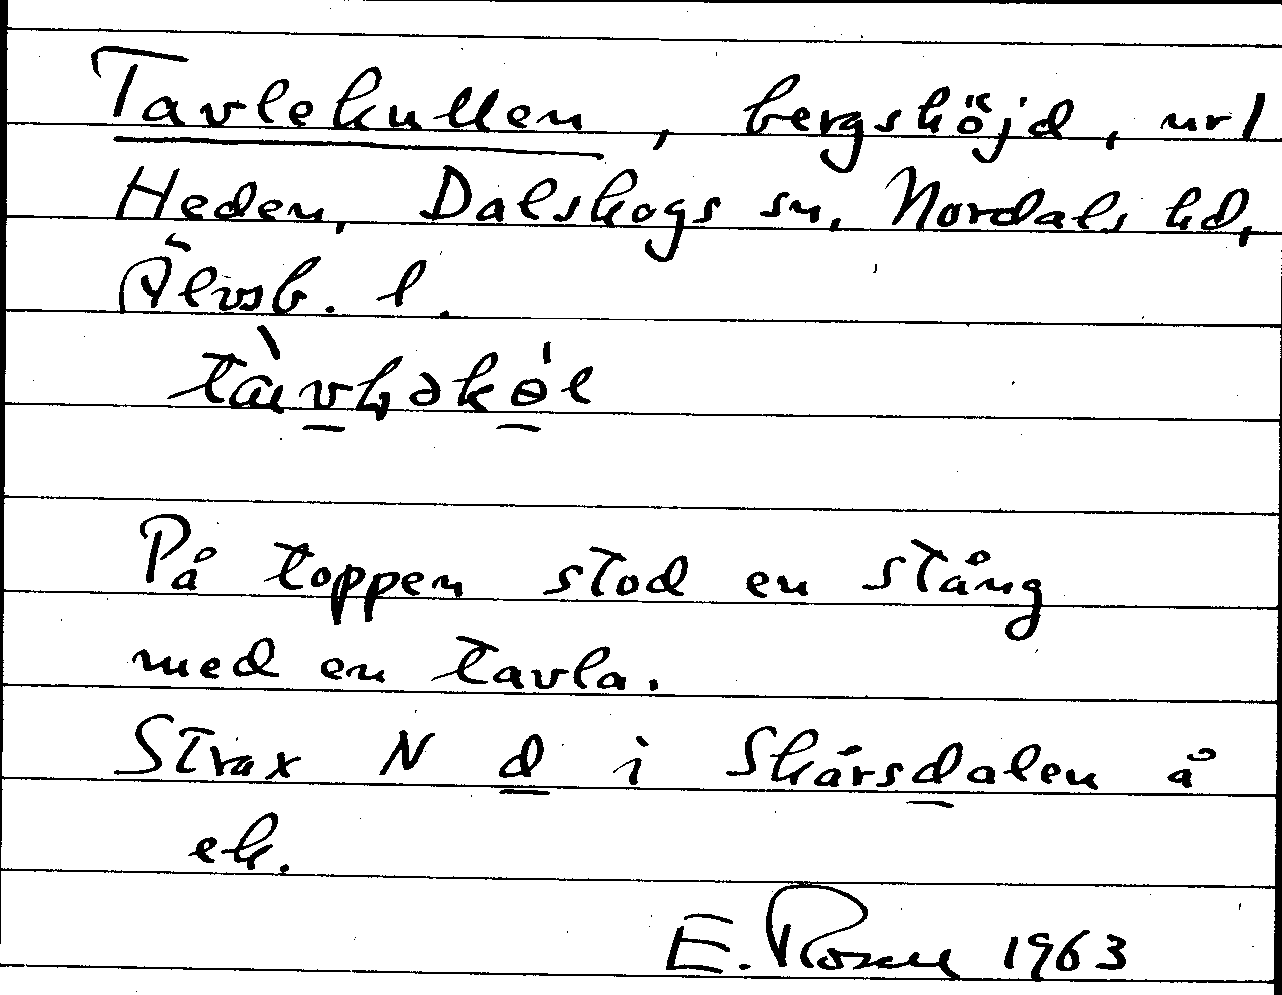 Tavlekullen, bergshöjd, nrl
Heden, Dalskogs sn, Nordals hd,
Älvsb. l.
På toppen stod en stång
med en tavla.
Strax N d i Skårsdalen å
ek.
E. Rosell 1963